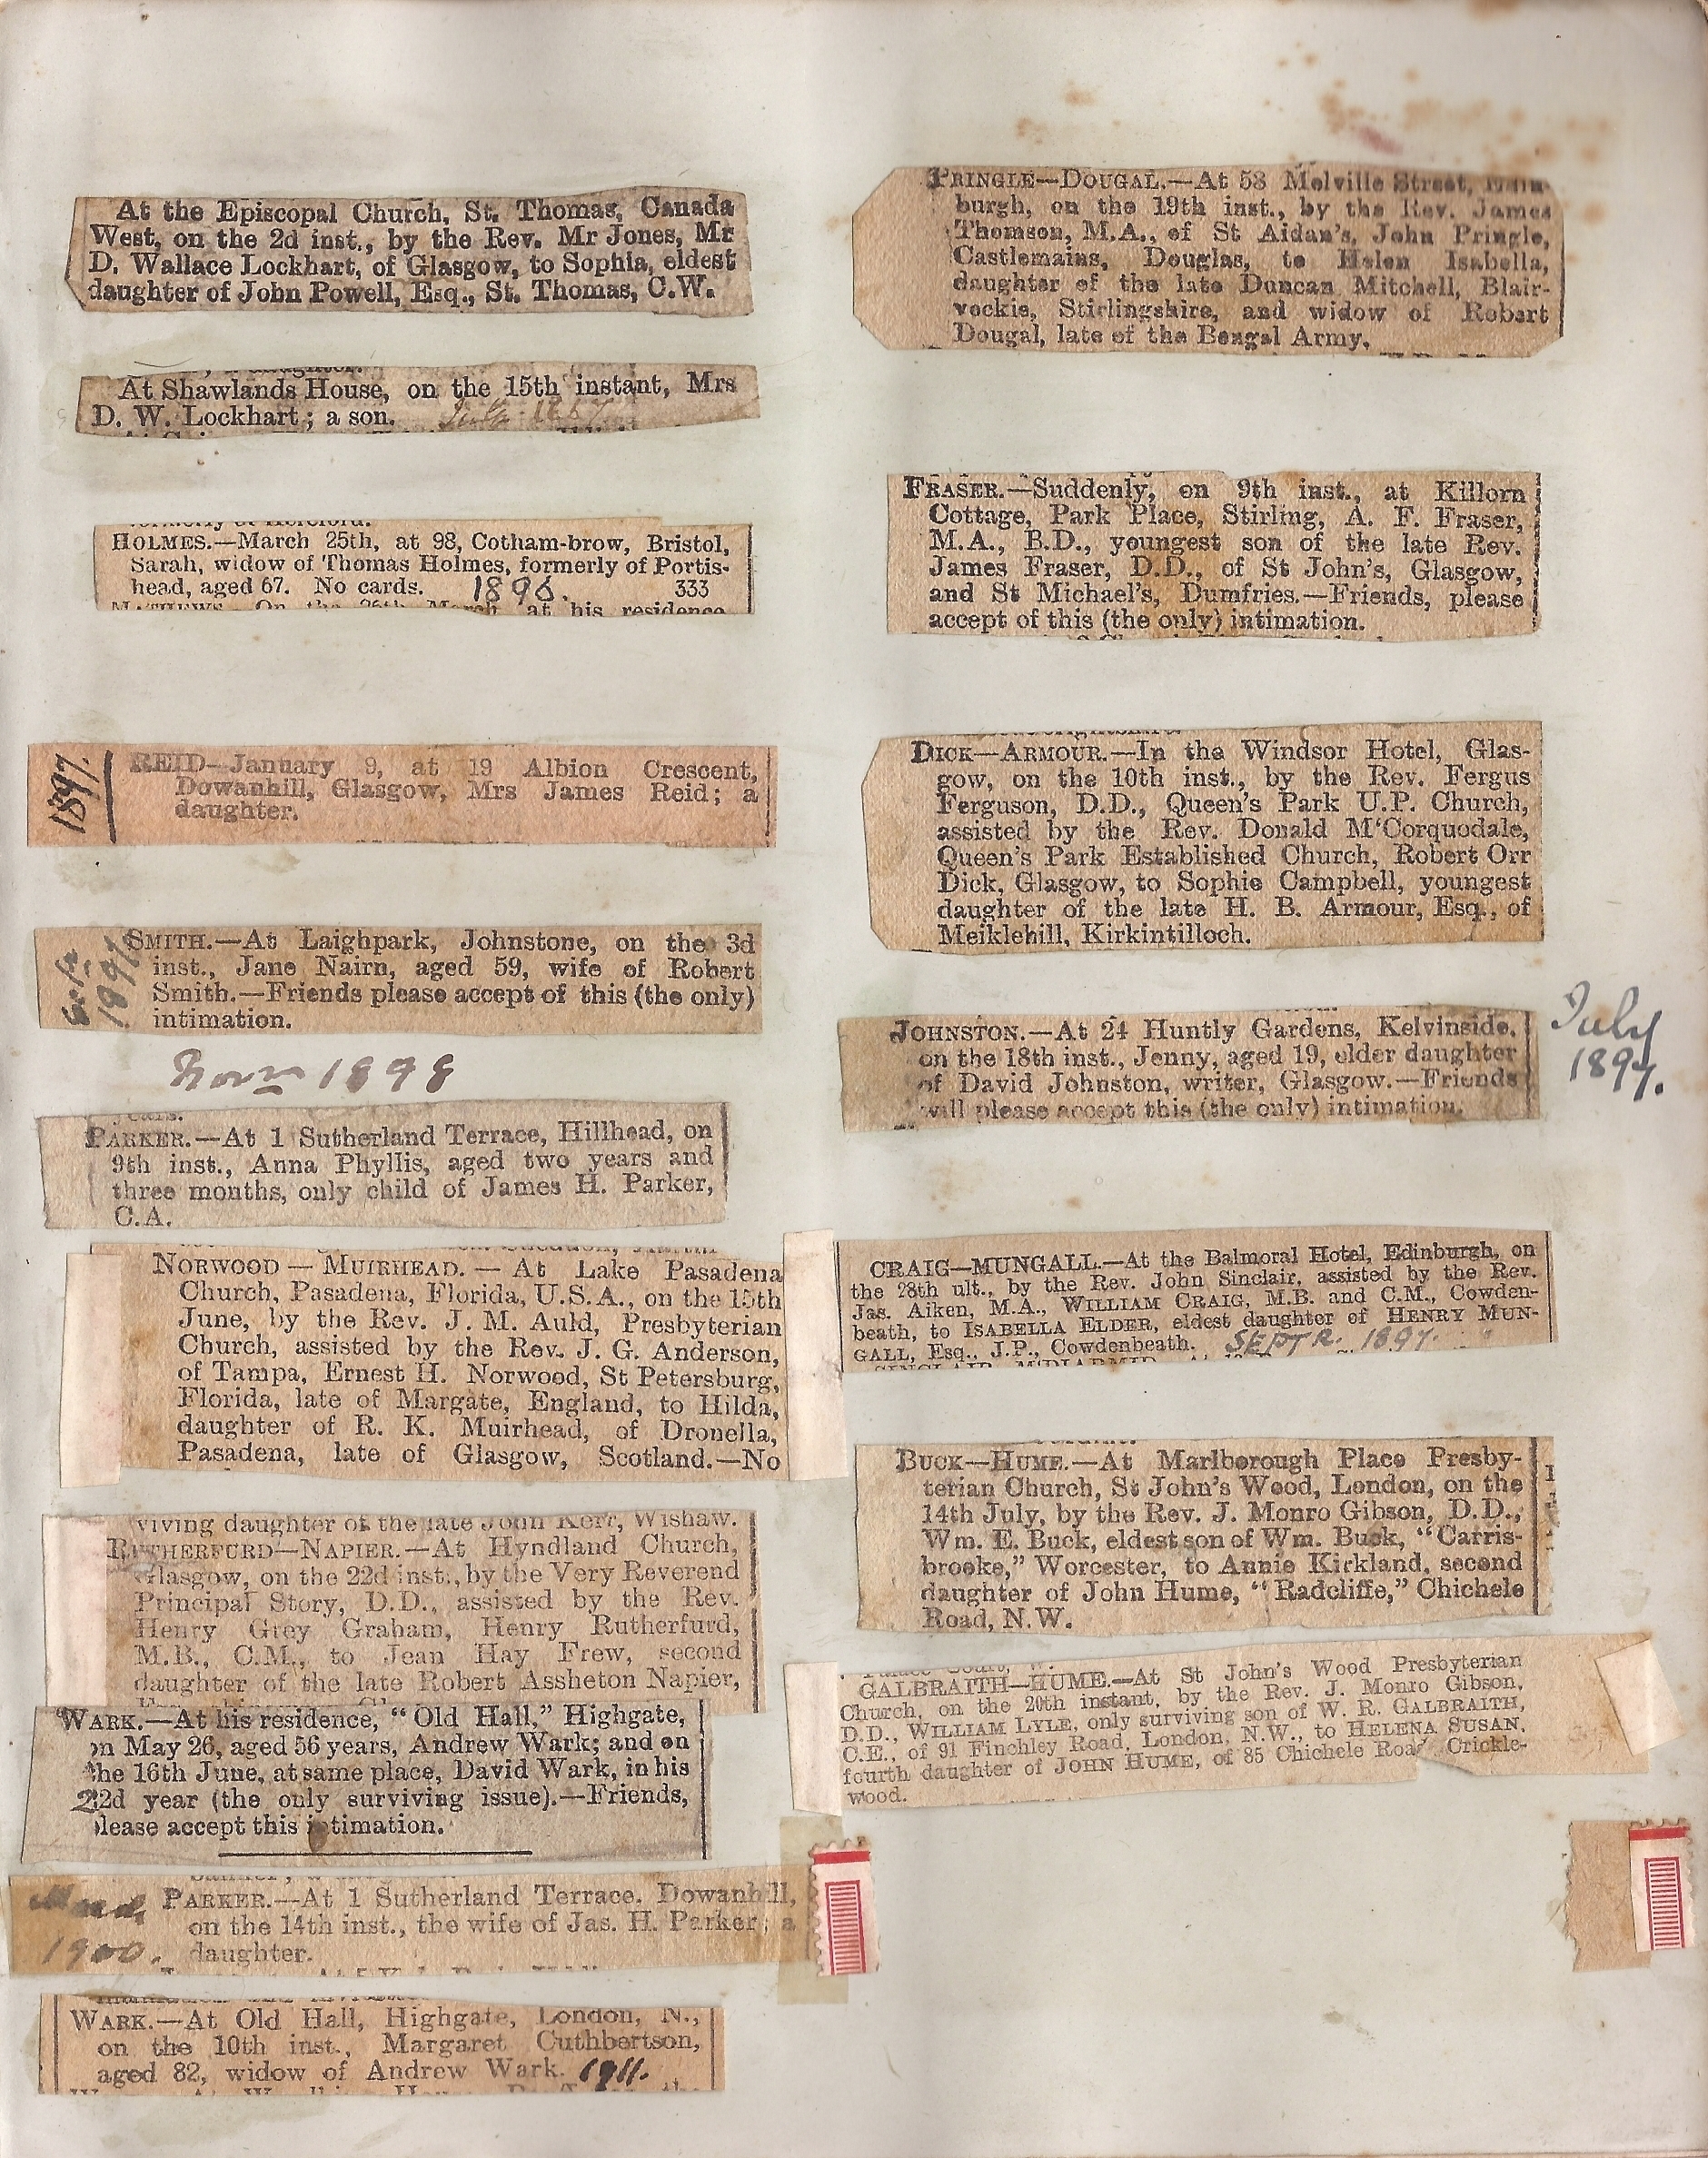 At the Episcopal Church, St. Thomas, Canada
West, on the 2d inst., by the Rev. Mr Jones, Mr
D. Wallace Lockhart, of Glasgow, to Sophia, eldest
daughter of John Powell, Esq., St. Thomas, C.W.
At Shawlands House, on the 15th instant, Mrs
D. W. Lockhart; a son.
formerly of Hereford.
HOLMES.—March 25th, at 98, Cotham-brow, Bristol,
Sarah, widow of Thomas Holmes, formerly of Portis-
head, aged 67. No cards. 1896. 333
MATHEWS. On the 26th March, at his residence
1897.
REID—January 9, at 19 Albion Crescent,
Dowanhill, Glasgow, Mrs James Reid; a
daughter.
SMITH.—At Laighpark, Johnstone, on the 3d
inst., Jane Nairn, aged 59, wife of Robert
Smith.—Friends please accept of this (the only)
intimation.
1898
years.
PARKER.—At 1 Sutherland Terrace, Hillhead, on
9th inst., Anna Phyllis, aged two years and
three months, only child of James H. Parker,
C.A.
NORWOOD — MUIRHEAD. — At Lake Pasadena
Church, Pasadena, Florida, U.S.A., on the 15th
June, by the Rev. J. M. Auld, Presbyterian
Church, assisted by the Rev. J. G. Anderson,
of Tampa, Ernest H. Norwood, St Petersburg,
Florida, late of Margate, England, to Hilda,
daughter of R. K. Muirhead, of Dronella,
Pasadena, late of Glasgow, Scotland.—No
viving daughter of the late John Kerr, Wishaw.
RUTHERFURD—NAPIER.—At Hyndland Church,
Glasgow, on the 22d inst., by the Very Reverend
Principal Story, D.D., assisted by the Rev.
Henry Grey Graham, Henry Rutherfurd,
M.B., C.M., to Jean Hay Frew, second
daughter of the late Robert Assheton Napier,
WARK.—At his residence, "Old Hall," Highgate,
on May 26, aged 56 years, Andrew Wark; and on
the 16th June, at same place, David Wark, in his
22d year (the only surviving issue).—Friends,
please accept this intimation.
1900.
PARKER.—At 1 Sutherland Terrace. Dowanhill,
on the 14th inst., the wife of Jas. H. Parker; a
daughter.
WARK.—At Old Hall, Highgate, London, N.,
on the 10th inst., Margaret Cuthbertson,
aged 82, widow of Andrew Wark. 1911.
PRINGLE—DOUGAL.—At 58 Melville Street, Edin-
burgh, on the 19th inst., by the Rev. James
Thomson, M.A., of St Aidan's, John Pringle,
Castlemains, Douglas, to Helen Isabella,
daughter of the late Duncan Mitchell, Blair-
vockie, Stirlingshire, and widow of Robert
Dougal, late of the Bengal Army.
FRASER.—Suddenly, on 9th inst., at Killorn
Cottage, Park Place, Stirling, A. F. Fraser,
M.A., B.D., youngest son of the late Rev.
James Fraser, D.D., of St John's, Glasgow,
and St Michael's, Dumfries.—Friends, please
accept of this (the only) intimation.
DICK—ARMOUR.—In the Windsor Hotel, Glas-
gow, on the 10th inst., by the Rev. Fergus
Ferguson, D.D., Queen's Park U.P. Church,
assisted by the Rev. Donald M'Corquodale,
Queen's Park Established Church, Robert Orr
Dick, Glasgow, to Sophie Campbell, youngest
daughter of the late H. B. Armour, Esq., of
Meiklehill, Kirkintilloch.
JOHNSTON.—At 24 Huntly Gardens, Kelvinside,
on the 18th inst., Jenny, aged 19, elder daughter
of David Johnston, writer, Glasgow.—Friends
will please accept this (the only) intimation.
July
1897.
CRAIG—MUNGALL.—At the Balmoral Hotel, Edinburgh, on
the 28th ult., by the Rev. John Sinclair, assisted by the Rev.
Jas. Aiken, M.A., WILLIAM CRAIG, M.B. and C.M., Cowden-
beath, to ISABELLA ELDER, eldest daughter of HENRY MUN-
GALL, Esq., J.P., Cowdenbeath. SEPTR. 1897.
SINCLAIR M'DIARMID
BUCK—HUME.—At Marlborough Place Presby-
terian Church, St John's Wood, London, on the
14th July, by the Rev. J. Monro Gibson, D.D.,
Wm. E. Buck, eldest son of Wm. Buck, "Carris-
brooke," Worcester, to Annie Kirkland, second
daughter of John Hume, "Radcliffe," Chichele
Road, N.W.
Palace Court, W.
GALBRAITH—HUME.—At St John's Wood Presbyterian
Church, on the 20th instant, by the Rev. J. Monro Gibson,
D.D., WILLIAM LYLE, only surviving son of W. R. GALBRAITH,
C.E., of 91 Finchley Road, London, N.W., to HELENA SUSAN,
fourth daughter of JOHN HUME, of 85 Chichele Road Crickle-
wood.